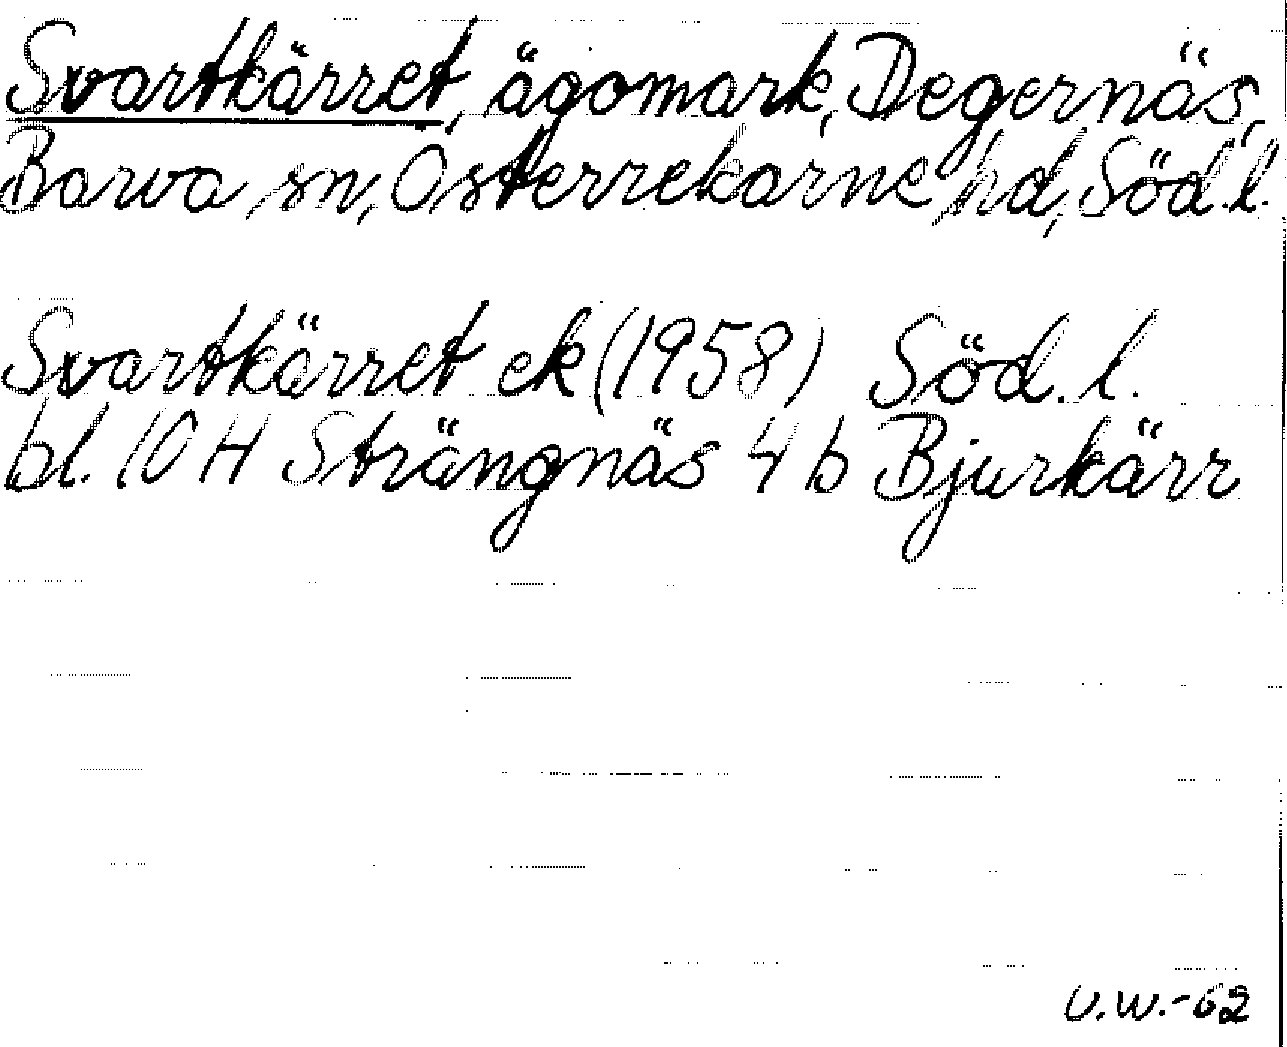 Svartkärret, ägomark, Degernäs,
Barva sn, Österrekarne hd, Söd.l.
Svartkärret ek (1958) Söd. l.
bl. 10 H Strängnäs 4 b Bjurkärr
U.W.-62